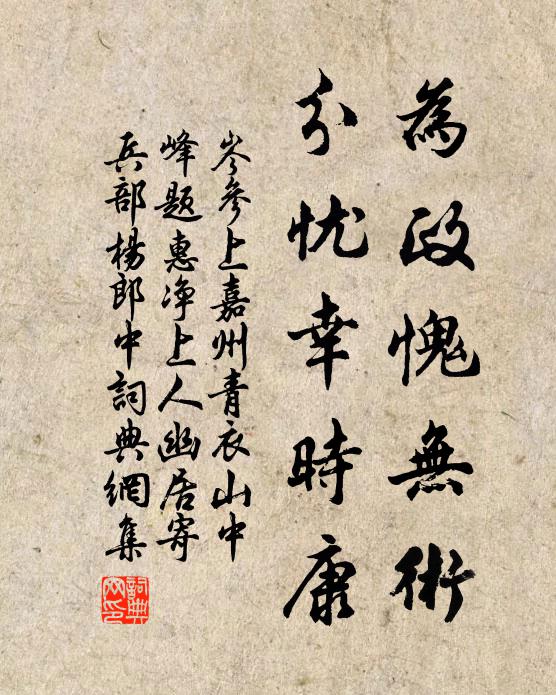 為政愧無術
分忧幸時康
岑參上嘉州青衣山中
峰题惠净上人幽居寄
兵部楊郎中詞典網集
詞典
网印